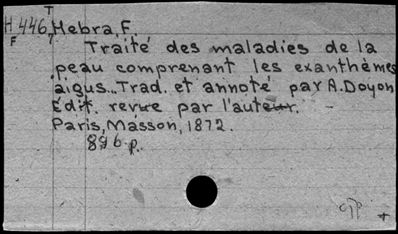 T
H.446, Hebra, F.
F
Traité des maladies de la
peau comprenant les exanthèmes
aigus. Trad. et annoté par A. Doyon
Édit. revue par l'auteur.
Paris, Masson, 1872.
896 p.